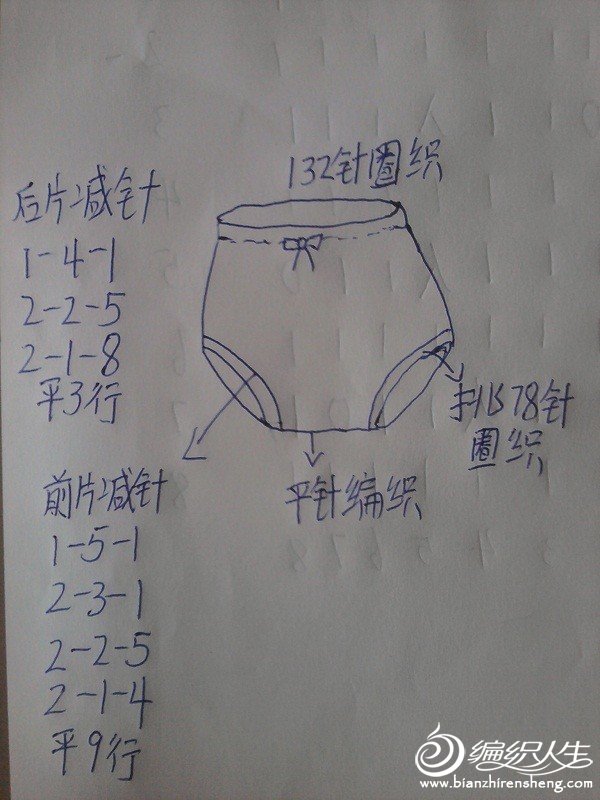 132针圈织
后片减针
1-4-1
2-2-5
2-1-8
平3行
扌178针
圈织
平针编织
前片减针
1-5-1
2-3-1
2-2-5
2-1-4
平9行
编织人生
www.bianzhirensheng.com